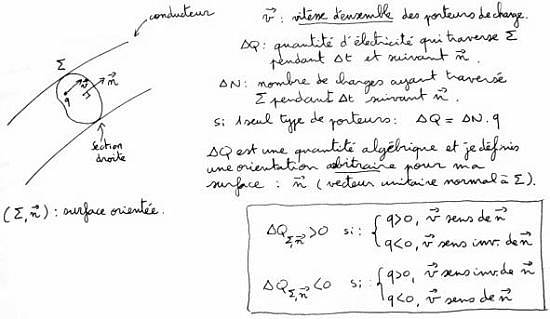 conducteur
Σ
n⃗
v⃗
q
section
droite
(Σ, n⃗) : surface orientée.
v⃗ : vitesse d'ensemble des porteurs de charge.
ΔQ : quantité d'électricité qui traverse Σ
pendant Δt et suivant n⃗.
ΔN : nombre de charges ayant traversé
Σ pendant Δt suivant n⃗.
si 1 seul type de porteurs : ΔQ = ΔN.q
ΔQ est une quantité algébrique et je définis
une orientation arbitraire pour ma
surface : n⃗ (vecteur unitaire normal à Σ).
ΔQ_Σ,n⃗ > 0 si : { q>0, v⃗ sens de n⃗
q<0, v⃗ sens inv. de n⃗
ΔQ_Σ,n⃗ < 0 si : { q>0, v⃗ sens inv. de n⃗
q<0, v⃗ sens de n⃗